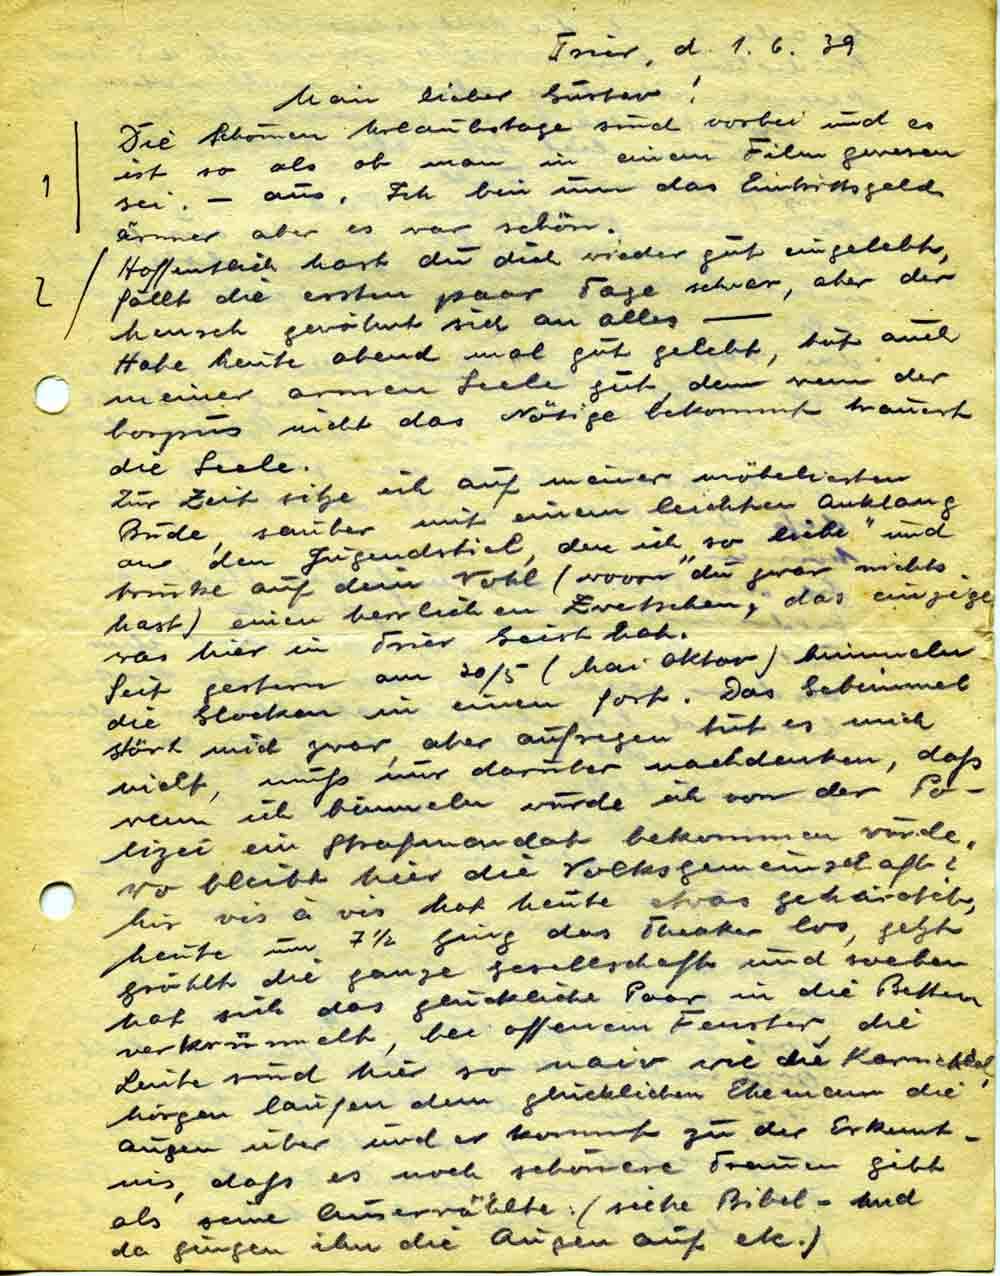 Trier, d. 1.6.39
Mein lieber Gustav!
Die schönen Urlaubstage sind vorbei und es
1
ist so als ob man in einem Film gewesen
sei. – aus. Ich bin um das Eintrittsgeld
ärmer aber es war schön.
2
Hoffentlich hast du dich wieder gut eingelebt,
fällt die ersten paar Tage schwer, aber der
Mensch gewöhnt sich an alles —
Habe heute abend mal gut gelebt, tut auch
meiner armen Seele gut, denn wenn der
Corpus nicht das Nötige bekommt trauert
die Seele.
Zur Zeit sitze ich auf meiner möbelierten
Bude, sauber mit einem leichten Anklang
an den Jugendstiel, den ich „so liebe" und
trinke auf dein Wohl (wovon du zwar nichts
hast) einen herrlichen Zwetschen, das einzige
was hier in Trier Geist hat.
Seit gestern am 30/5 (Mai Oktav) bimmeln
die Glocken in einem fort. Das Gebimmel
stört mich zwar, aber aufregen tut es mich
nicht, muß nur darüber nachdenken, daß
wenn ich bimmeln würde ich von der Po-
lizei ein Strafmandat bekommen würde.
Wo bleibt hier die Volksgemeinschaft?
Mir vis à vis hat heute etwas geheiratet,
heute um 7½ ging das Theater los, jetzt
gröhlt die ganze Gesellschaft und soeben
hat sich das glückliche Paar in die Betten
verkrümelt, bei offenem Fenster, die
Leute sind hier so naiv wie die Karnickel,
Morgen laufen dem glücklichen Ehemann die
Augen über und er kommt zu der Erkennt-
nis, daß es noch schönere Frauen gibt
als seine Auserwählte. (siehe Bibel – und
da gingen ihn die Augen auf etc.)